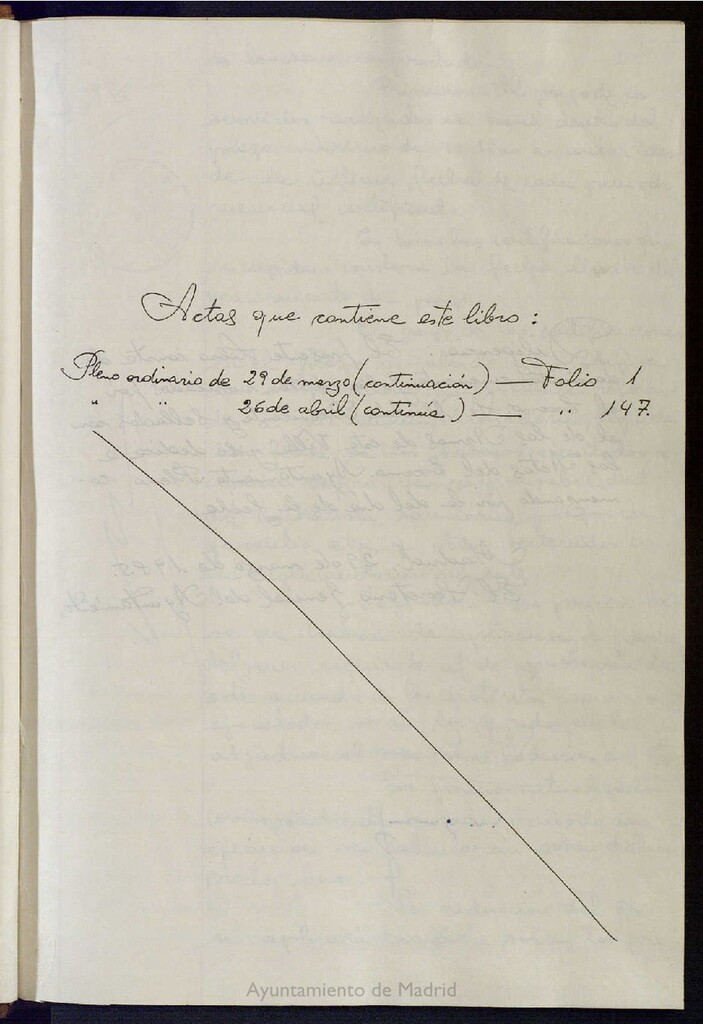 Actas que contiene este libro:
Pleno ordinario de 29 de marzo (continuación) — Folio 1
" " 26 de abril (continúa) — " 147.
Ayuntamiento de Madrid